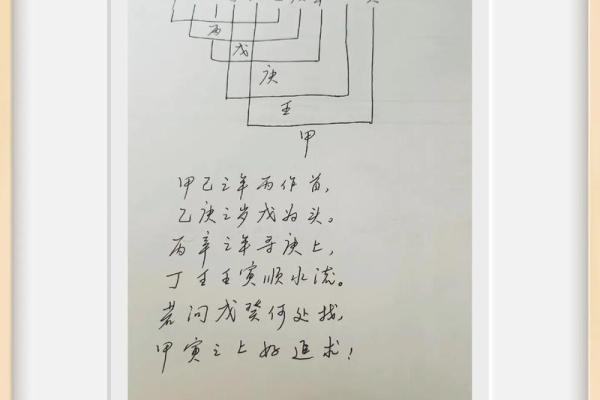 丙
戊
庚
壬
甲
甲己之年丙作首,
乙庚之岁戊为头。
丙辛之年寻庚上,
丁壬壬寅顺水流。
若问戊癸何处找,
甲寅之上好追求!